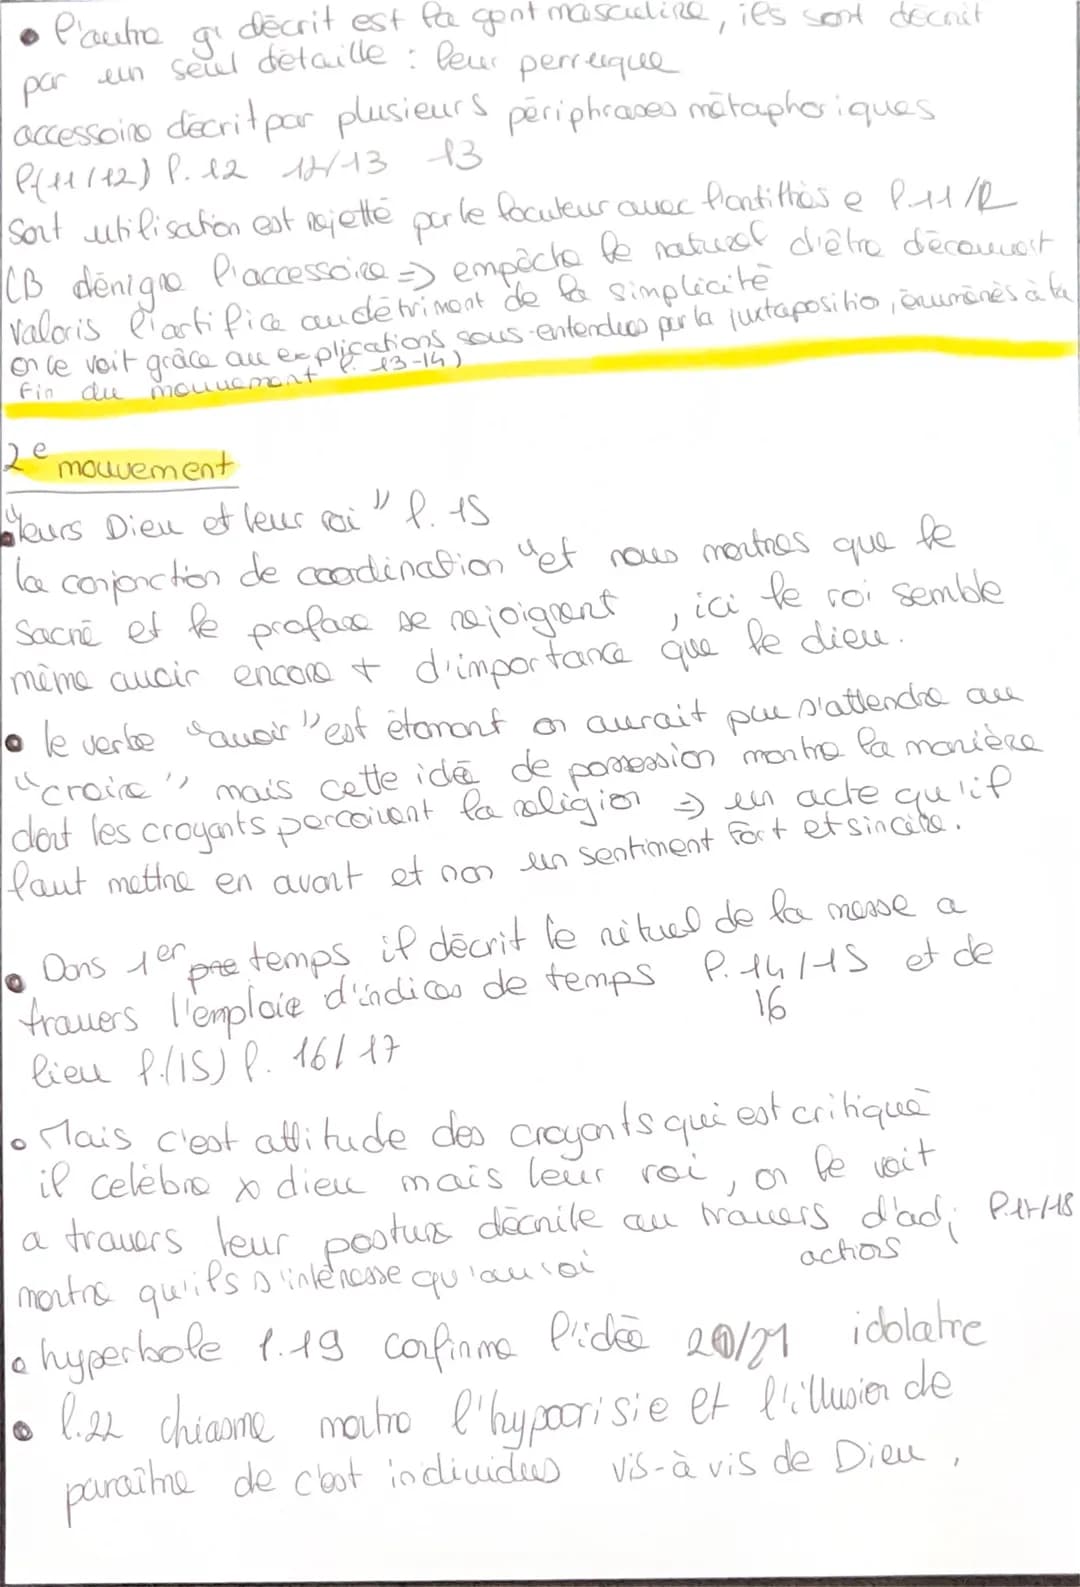 • l'autre gr décrit est la gent masculine, ils sont décrit
par un seul détaille : leur perruque
accessoire décrit par plusieurs périphrases métaphoriques
l.(11/12) l. 12 12/13 13
Sont utilisation est rejetté par le locuteur avec l'antithès e l.11/12
LB dénigre l'accessoire => empêche le naturel d'être découvert
valoris l'artifice au détriment de la simplicité
on le voit grâce au explications sous-entendues par la juxtapositio, énumérés à la
fin du mouvement l. 13-14)
2e mouvement
"leurs Dieu et leur roi" l. 15
la conjonction de coordination "et nous montres que le
sacré et le profane se rejoignent , ici le roi semble
même avoir encore + d'importance que le dieu.
• le verbe "avoir" est étonant on aurait pu s'attendre au
"croire" mais cette idé de possession montre la manière
dont les croyants percoivent la religion => un acte qu'il
faut mettre en avant et non un sentiment fort et sincère.
• Dans 1er temps il décrit le rituel de la messe a
travers l'emploie d'indices de temps l. 14/15 et de
16
lieu l.(15) l. 16/17
• Mais c'est attitude des croyants qui est critiqué
il celèbre x dieu mais leur roi, on le voit
a travers leur posture décrite au travers d'adj l.17/18
actions
montre qu'ils s'interesse qu'au roi
• hyperbole l.19 confirme l'idée 20/21 idolatre
• l.22 chiasme montre l'hypocrisie et l'illusion de
paraître de c'est individus vis-à vis de Dieu,